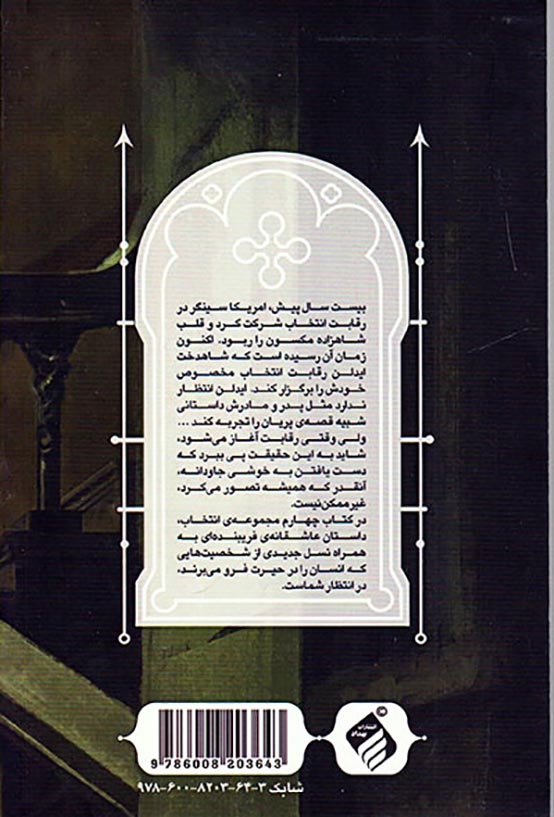 بیست سال پیش، امریکا سینگر در
رقابت انتخاب شرکت کرد و قلب
شاهزاده مکسون را ربود. اکنون
زمان آن رسیده است که شاهدخت
ایدلن رقابت انتخاب مخصوص
خودش را برگزار کند. ایدلن انتظار
ندارد مثل پدر و مادرش داستانی
شبیه قصه‌ی پریان را تجربه کند ...
ولی وقتی رقابت آغاز می‌شود،
شاید به این حقیقت پی ببرد که
دست یافتن به خوشی جاودانه،
آنقدر که همیشه تصور می‌کرد،
غیرممکن نیست.
در کتاب چهارم مجموعه‌ی انتخاب،
داستان عاشقانه‌ی فریبنده‌ای به
همراه نسل جدیدی از شخصیت‌هایی
که انسان را در حیرت فرو می‌برند،
در انتظار شماست.
9 786008 203643
شابک ۳-۶۴-۸۲۰۳-۶۰۰-۹۷۸
انتشارات
بهداد